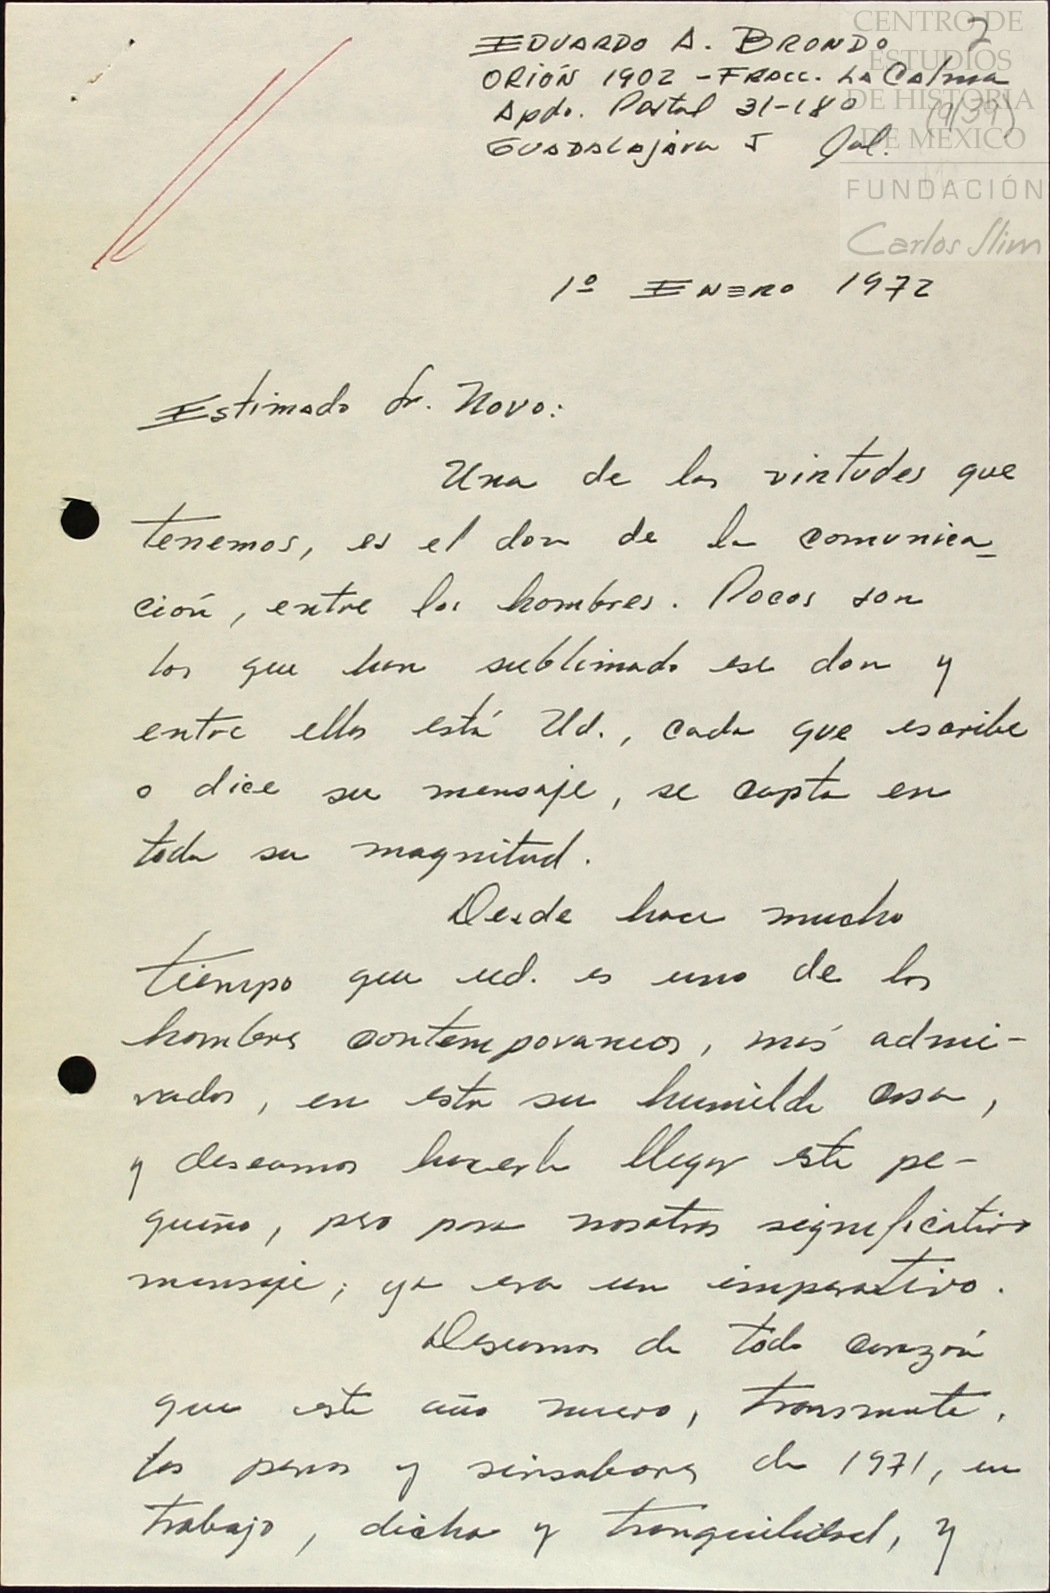 2
EDUARDO A. BRONDO
ORIÓN 1902 - FRACC. LA Calma
Apdo. Postal 31-180
(939)
GUADALAJARA 5 Jal.
CENTRO DE
ESTUDIOS
DE HISTORIA
DE MÉXICO
FUNDACIÓN
Carlos Slim
1º ENERO 1972
Estimado Sr. Novo:
Una de las virtudes que
tenemos, es el don de la comunica-
ción, entre los hombres. Pocos son
los que han sublimado ese don y
entre ellos está Ud., cada que escribe
o dice su mensaje, se capta en
toda su magnitud.
Desde hace mucho
tiempo que ud. es uno de los
hombres contemporaneos, más admi-
rados, en esta su humilde casa,
y deseamos hacerle llegar este pe-
queño, pero para nosotros significativo
mensaje; ya era un imperativo.
Deseamos de todo corazón
que este año nuevo, transmute,
las penas y sinsabores de 1971, en
trabajo, dicha y tranquilidad, y